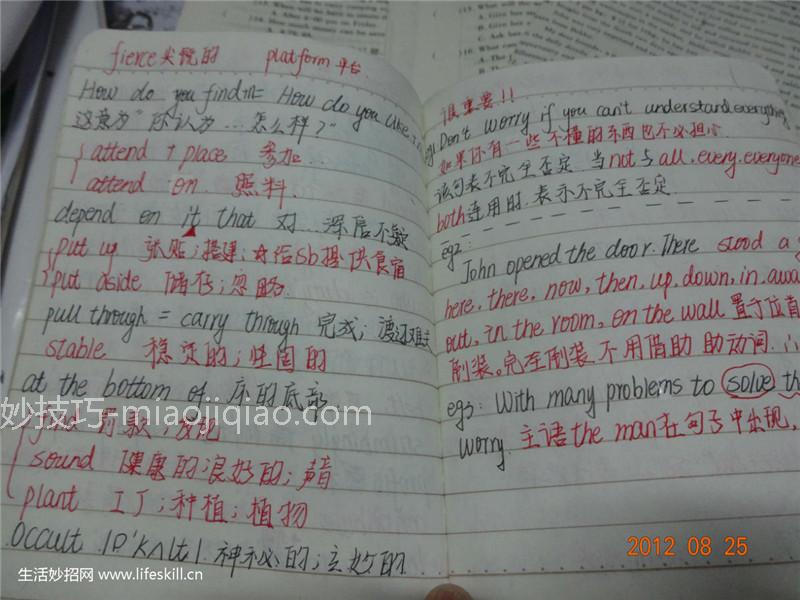 fierce 尖锐的 platform 平台
How do you find sth = How do you like
这意为“你认为...怎么样?”
attend + place 参加...
attend on 照料.
depend on it that 对...深信不疑
put up 张贴;搭建;给sb提供食宿
put aside 储存;忽略.
pull through = carry through 完成;渡过难关
stable 稳定的;牢固的
at the bottom of 在的底部
sound 健康的良好的;声音
plant 工厂;种植;植物
occult 神秘的;玄妙的
很重要!!
eg Don't worry if you can't understand everything
如果你有一些不懂的东西也不必担心
该句表不完全否定.当not与all.every.everyone
both连用时.表示不完全否定.
eg2:
John opened the door. There stood a
here, there, now, then, up, down, in, away
out, in the room, on the wall 置于位首
倒装。完全倒装不用借助助动词.
eg3: With many problems to solve
worry. 主语the man在句子中出现,
2012 08 25
妙技巧-miaojiqiao.com
生活妙招网 www.lifeskill.cn